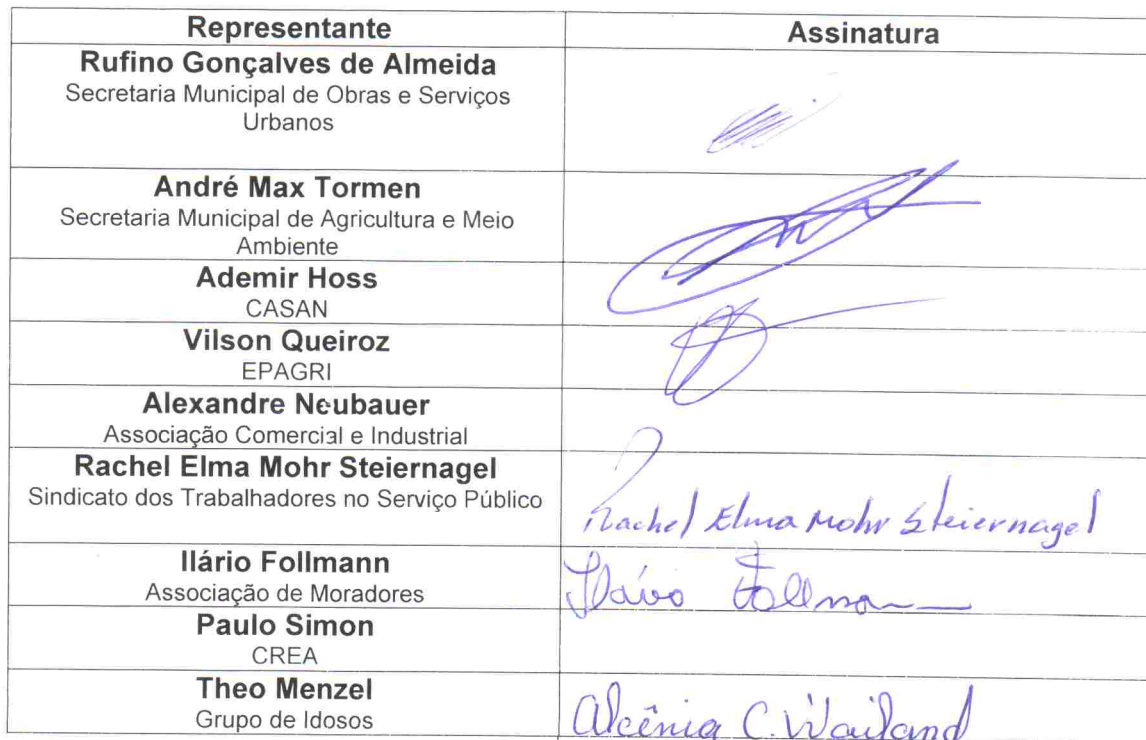 Representante Assinatura
Rufino Gonçalves de Almeida
Secretaria Municipal de Obras e Serviços
Urbanos
André Max Tormen
Secretaria Municipal de Agricultura e Meio
Ambiente
Ademir Hoss
CASAN
Vilson Queiroz
EPAGRI
Alexandre Neubauer
Associação Comercial e Industrial
Rachel Elma Mohr Steiernagel
Sindicato dos Trabalhadores no Serviço Público
Rachel Elma Mohr Steiernagel
Ilário Follmann
Associação de Moradores
Ilário Follmann
Paulo Simon
CREA
Theo Menzel
Grupo de Idosos
Alcênia C.